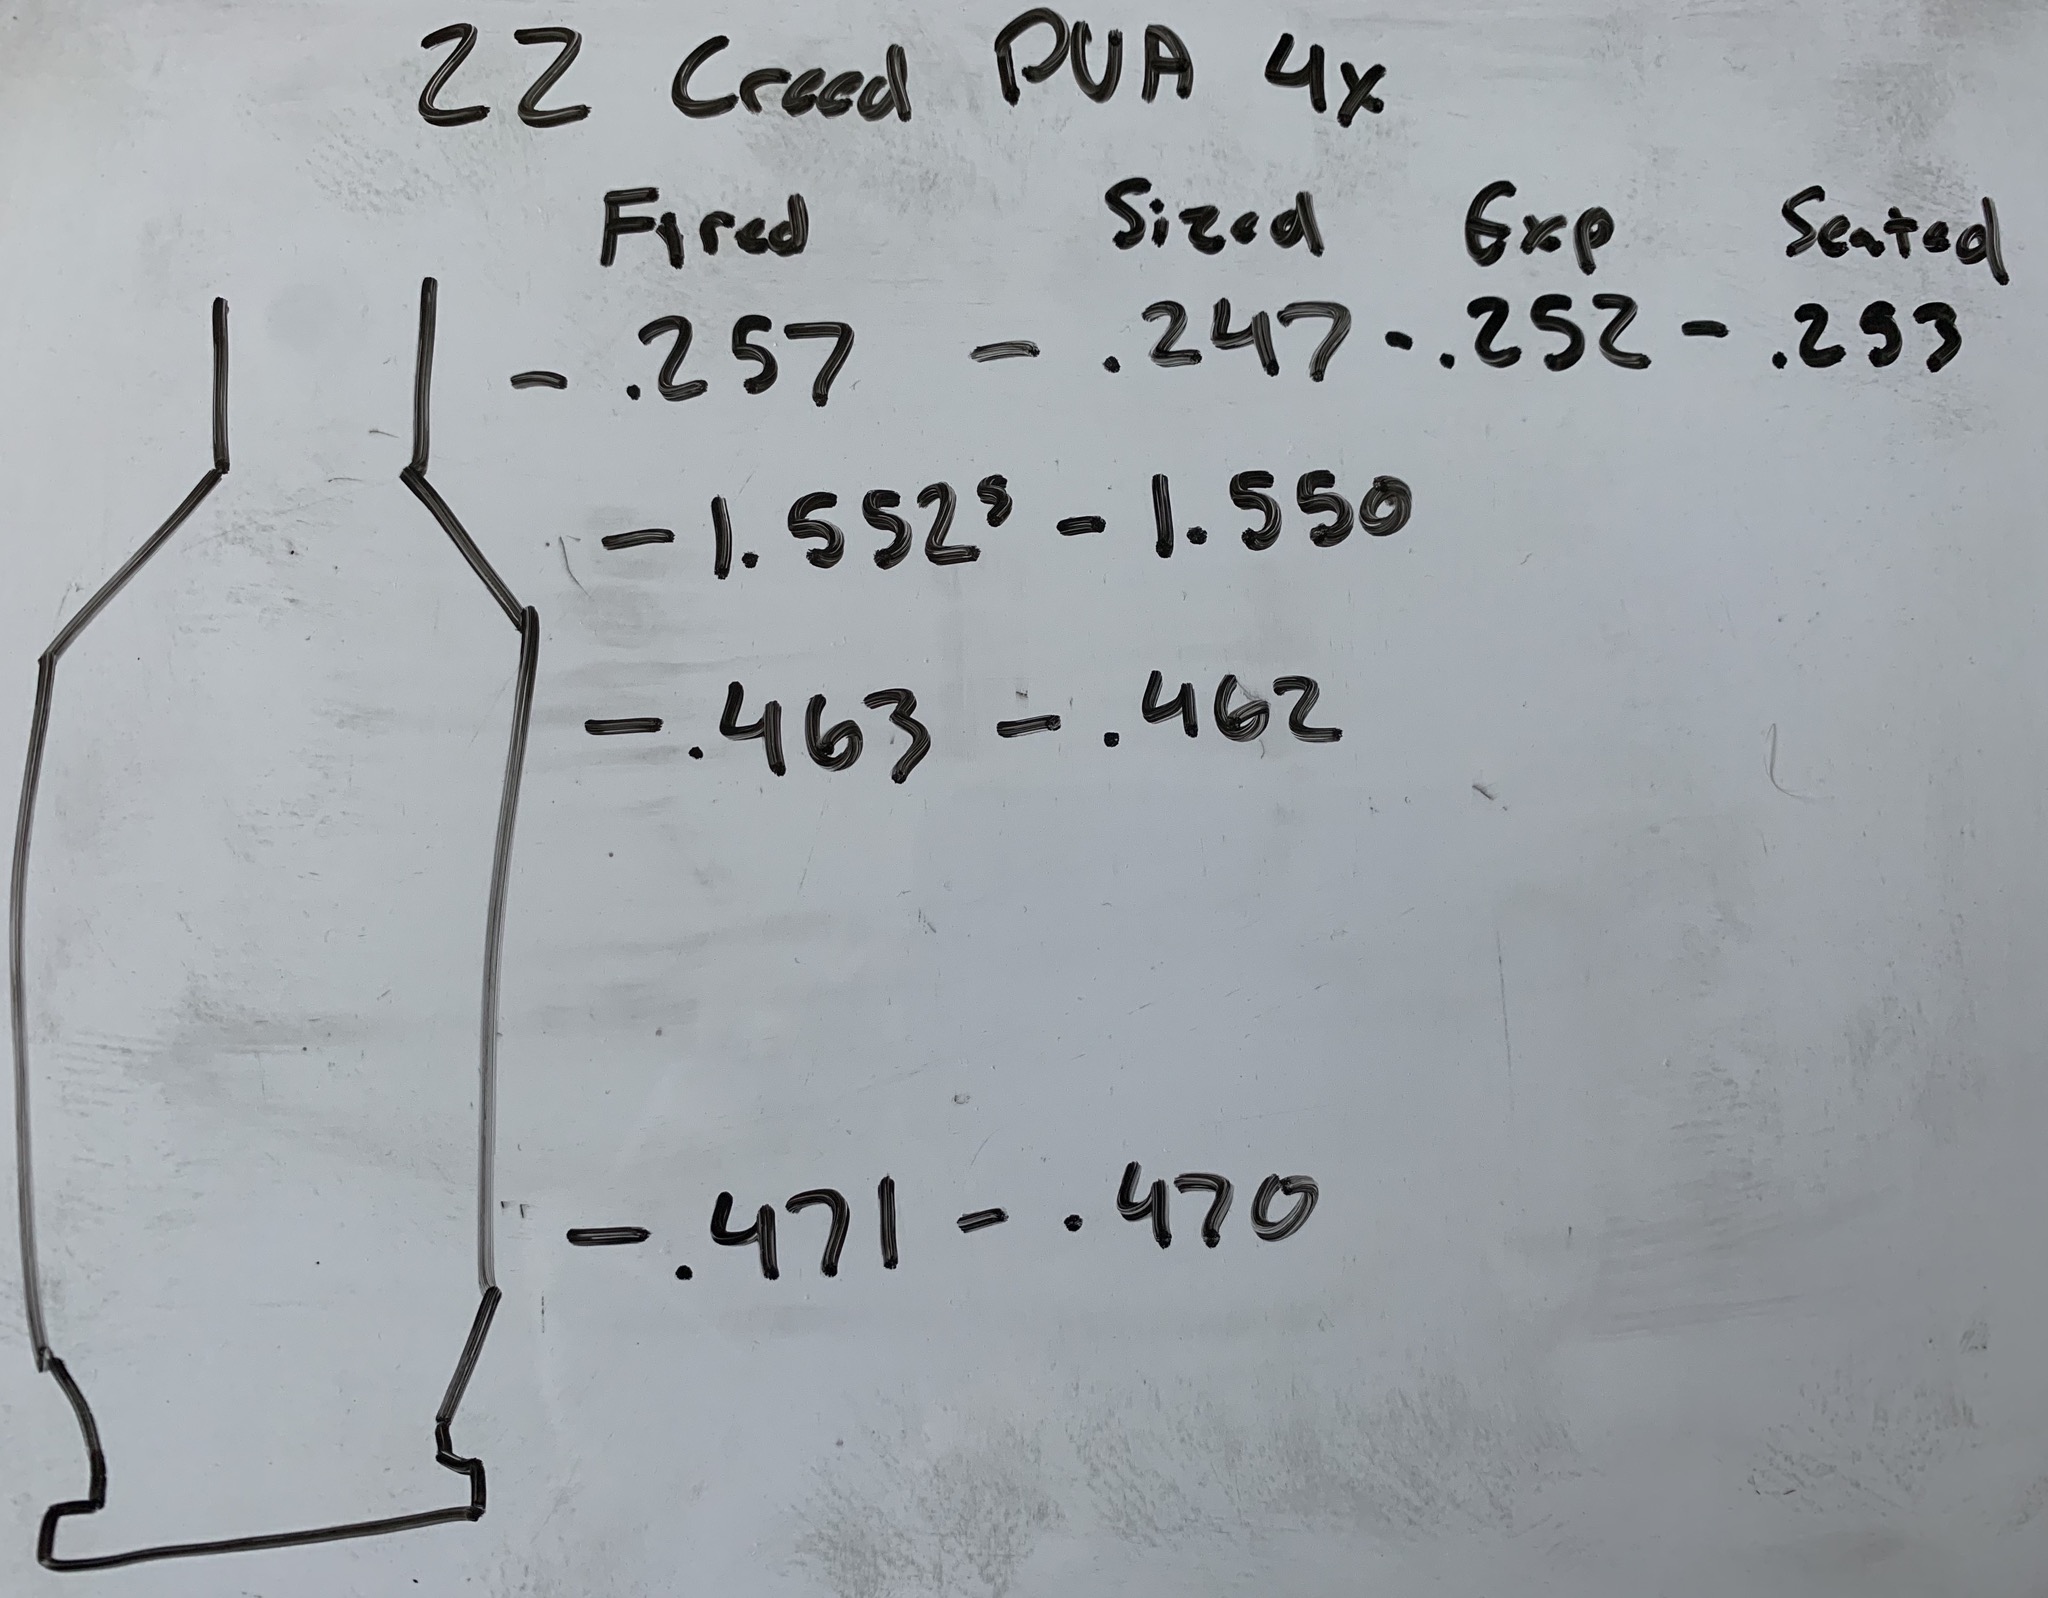 22 Creed PVA 4x
Fired Sized Exp Seated
- .257 - .247 - .252 - .253
- 1.552⁵ - 1.550
- .463 - .462
- .471 - .470